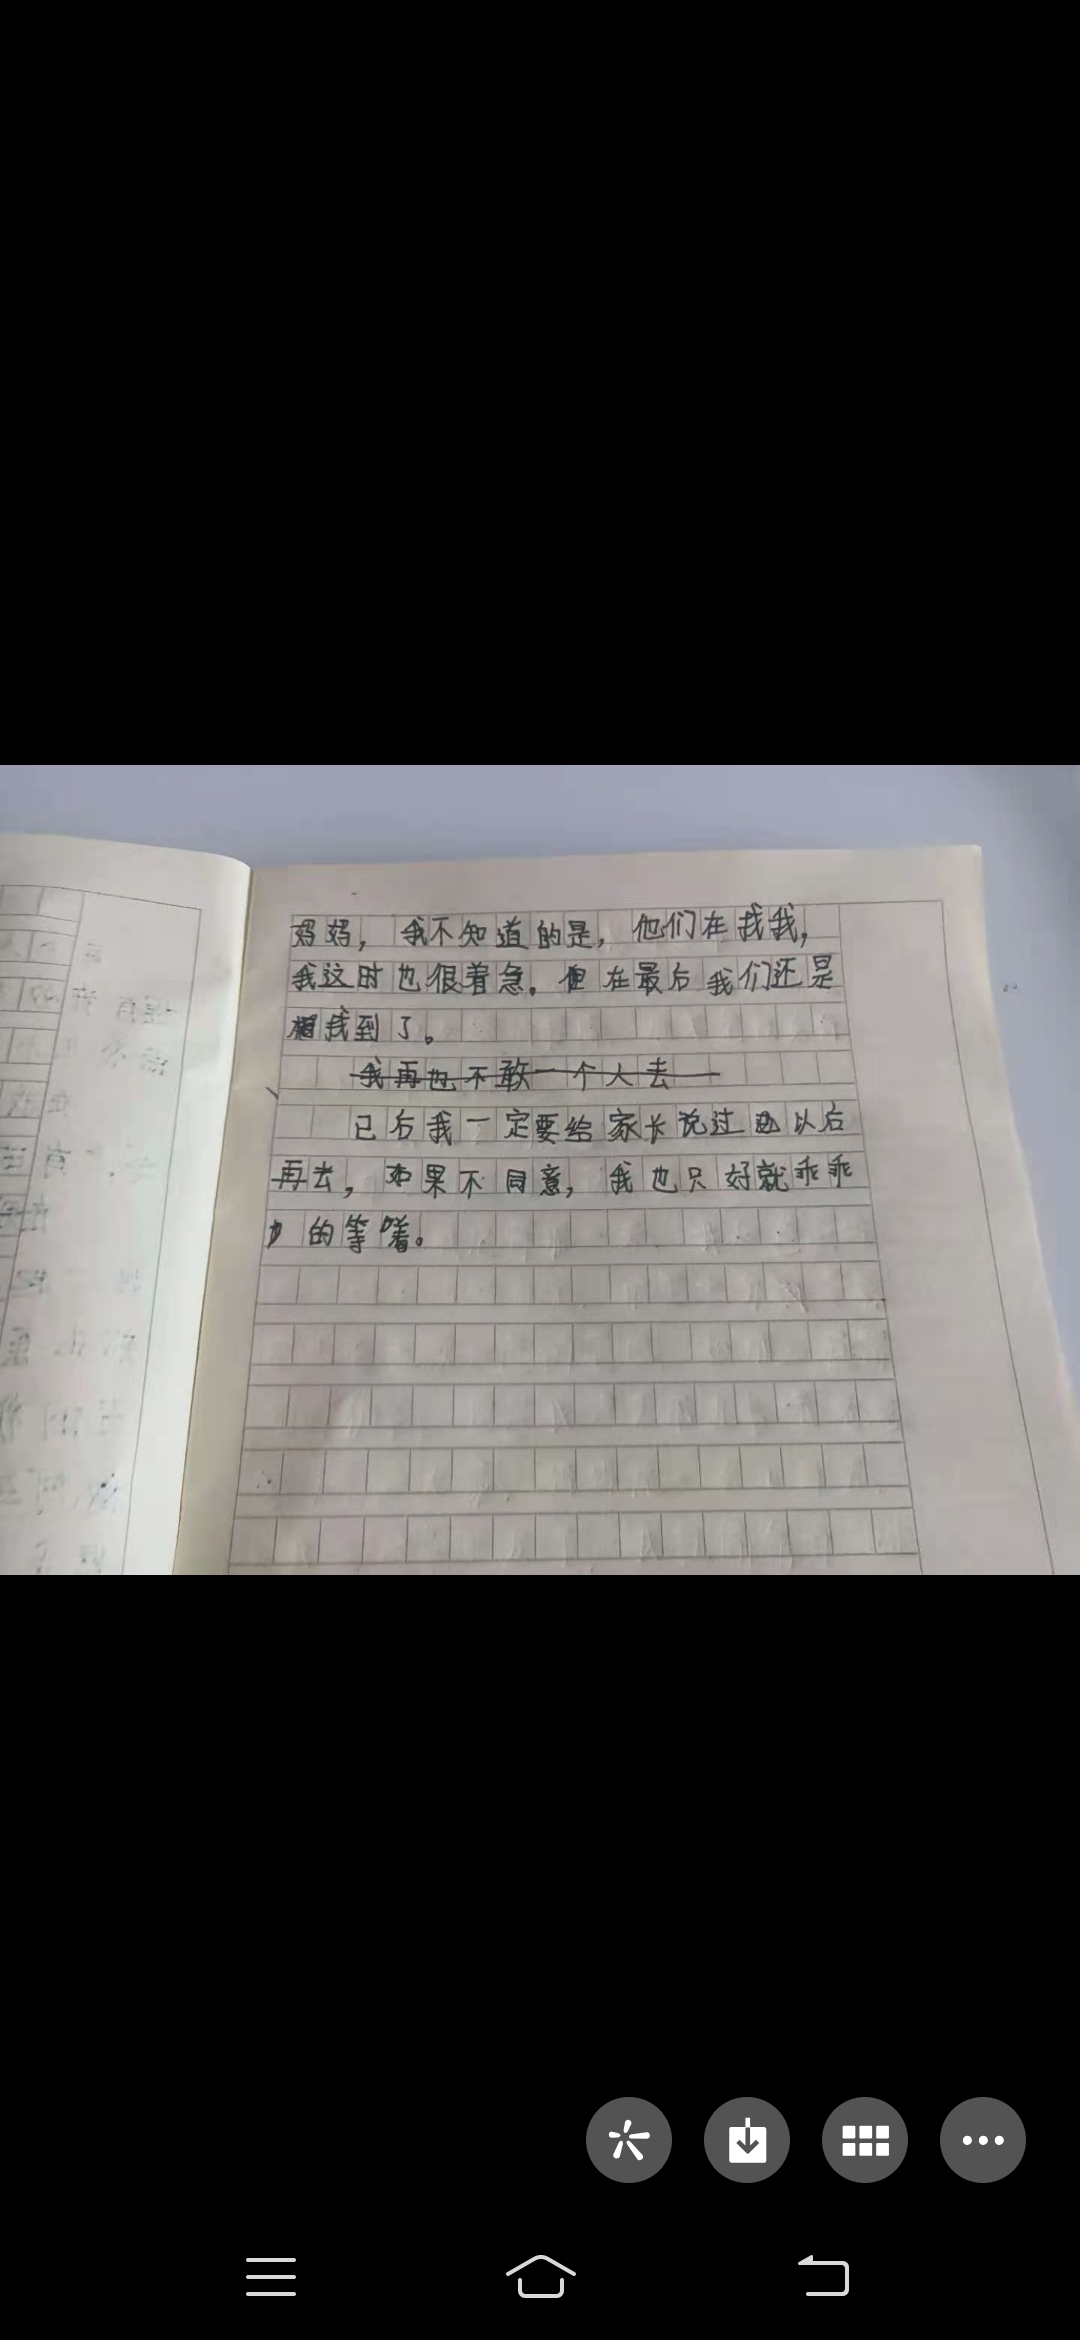 妈妈，我不知道的是，他们在找我，
我这时也很着急。但在最后我们还是
相找到了。
我再也不敢一个人去
已后我一定要给家长说过以后
再去，如果不同意，我也只好就乖乖
的等着。